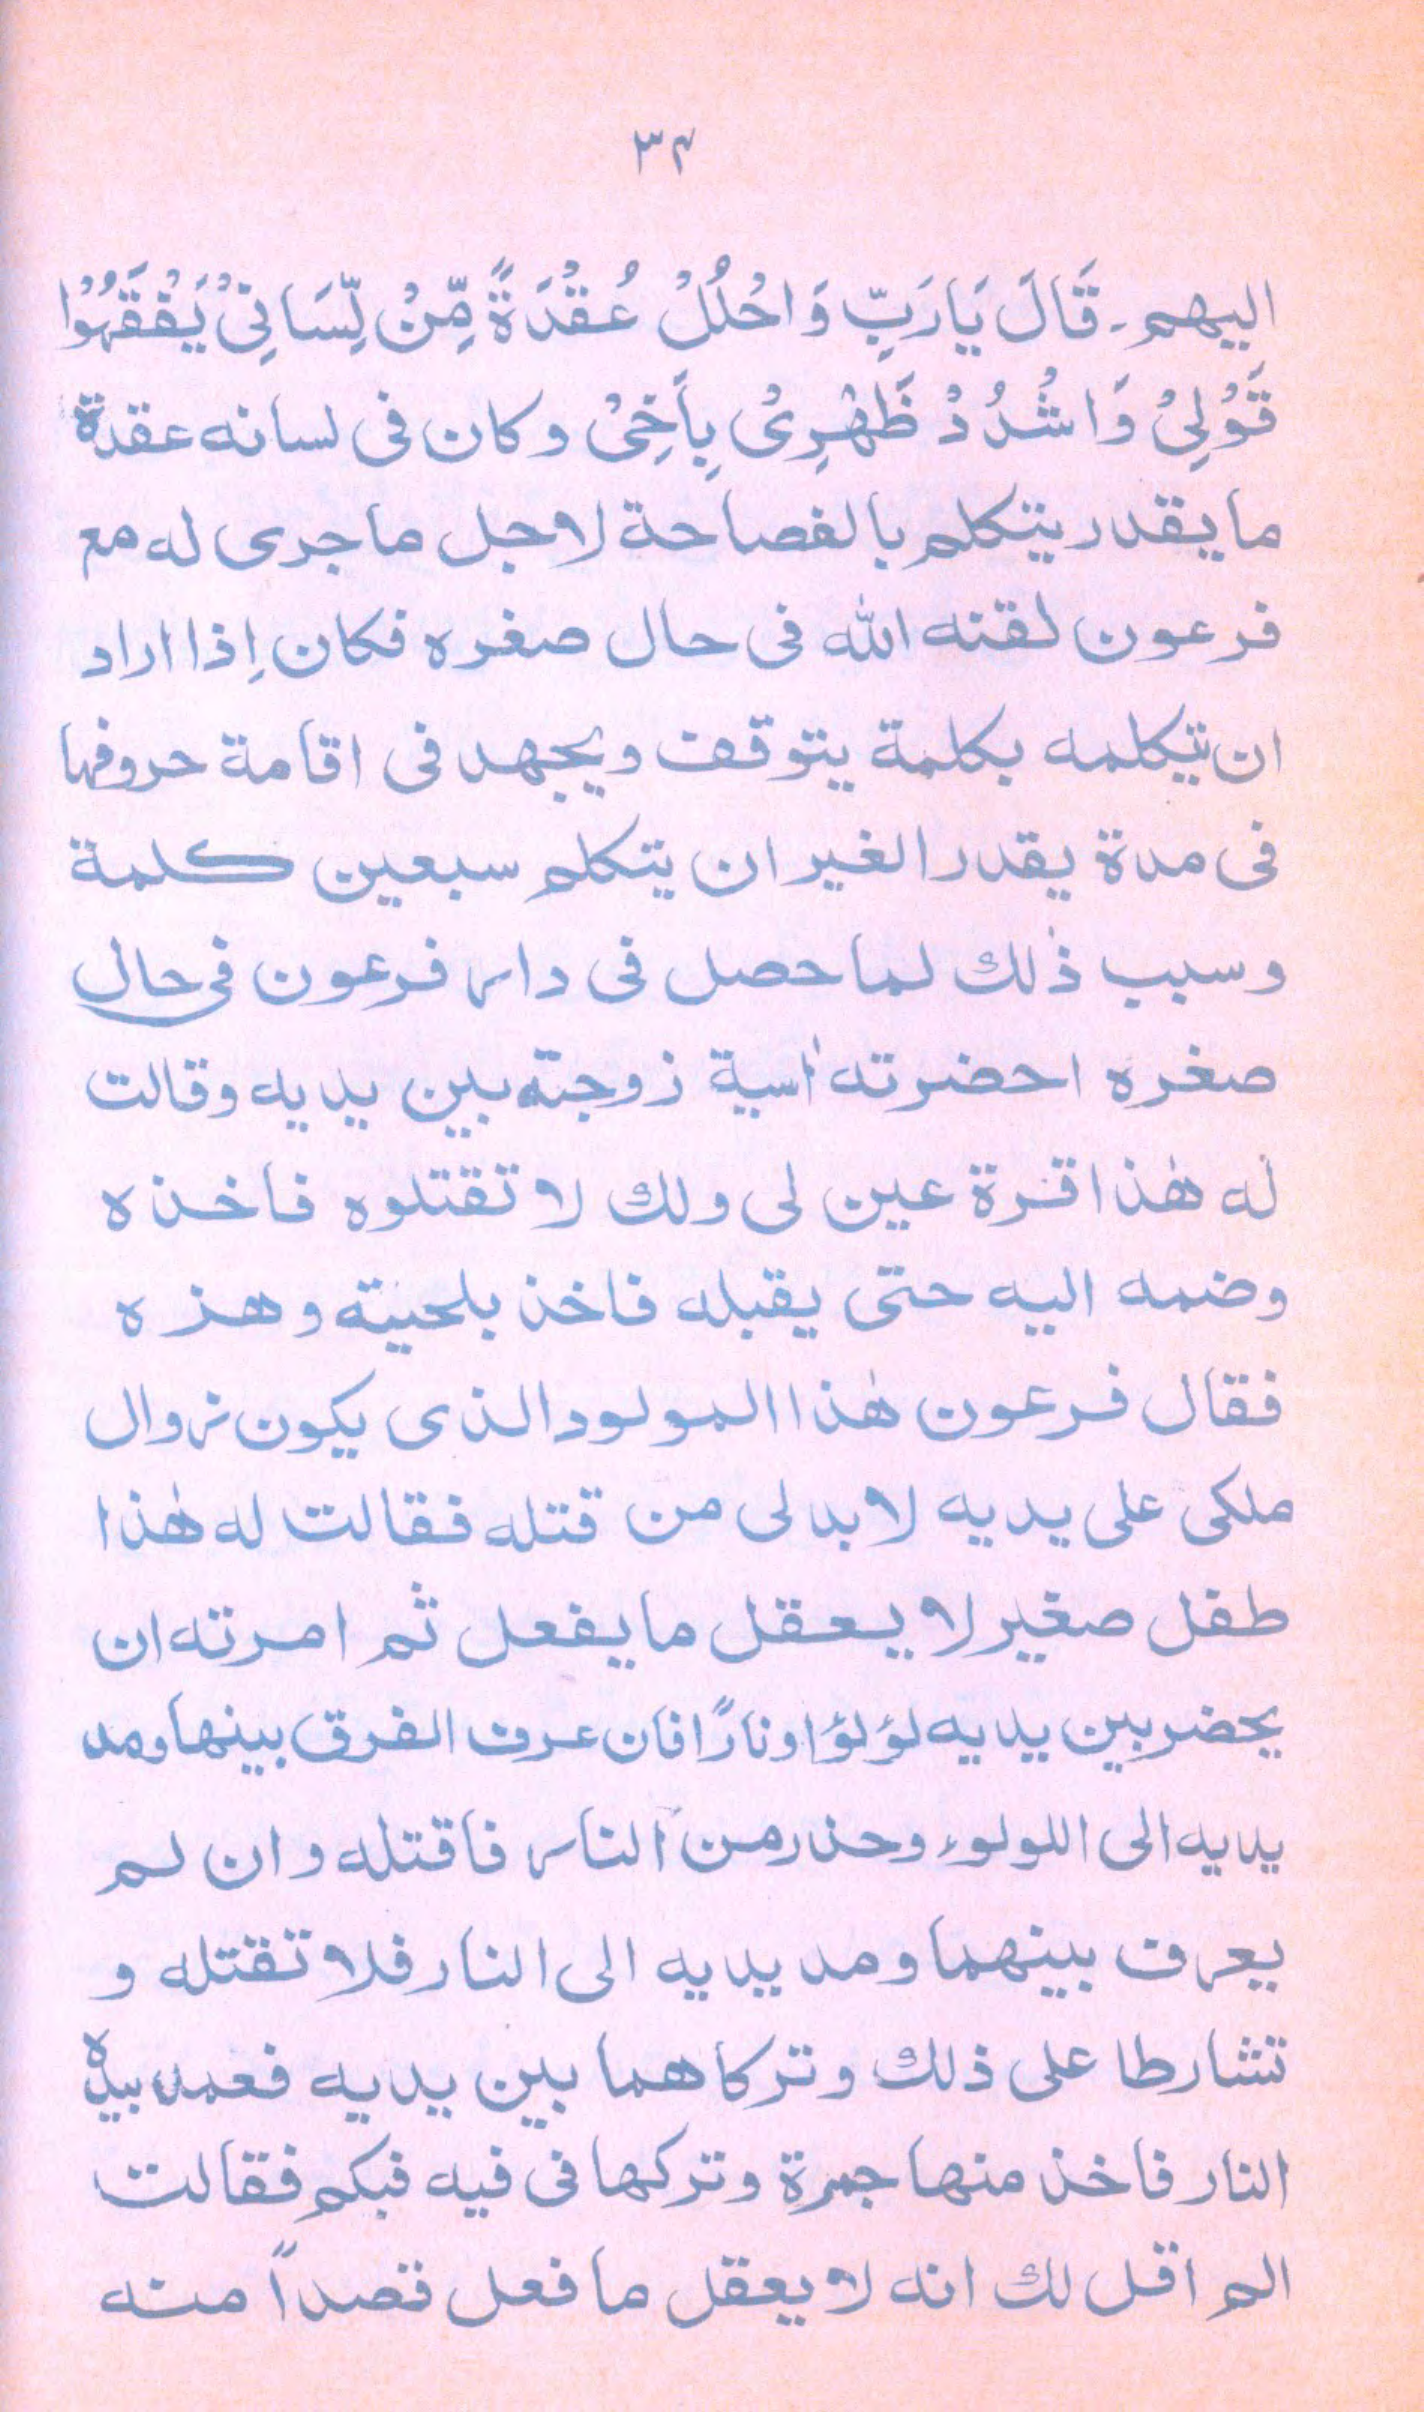 ۳۴
اليهم ـ قَالَ يَارَبِّ وَاحْلُلْ عُقْدَةً مِّنْ لِّسَانِيْ يَفْقَهُوْا
قَوْلِيْ وَاشْدُدْ ظَهْرِيْ بِاَخِيْ وكان فى لسانه عقدة
مايقدر يتكلم بالفصاحة لاجل ماجرى له مع
فرعون لقنه الله فى حال صغره فكان إذا اراد
ان يتكلمه بكلمة يتوقف ويجهد فى اقامة حروفها
فى مدة يقدر الغير ان يتكلم سبعين كلمة
وسبب ذٰلك لما حصل فى دار فرعون فى حال
صغره احضرته اٰسية زوجته بين يديه وقالت
له هٰذا قرة عين لى ولك لا تقتلوه فاخذه
وضمه اليه حتى يقبله فاخذ بلحيته وهزه
فقال فرعون هٰذا المولود الذى يكون زوال
ملكى على يديه لابد لى من قتله فقالت له هٰذا
طفل صغير لا يعقل مايفعل ثم امرته ان
يحضر بين يديه لؤلؤا ونارًا فان عرف الفرق بينهما ومد
يديه الى اللولوء وحذر من النار فاقتله وان لم
يعرف بينهما ومد يديه الى النار فلا تقتله و
تشارطا على ذلك وتركاهما بين يديه فعمد بيده
النار فاخذ منها جمرة وتركها فى فيه فبكم فقالت
الم اقل لك انه لا يعقل ما فعل قصداً منه